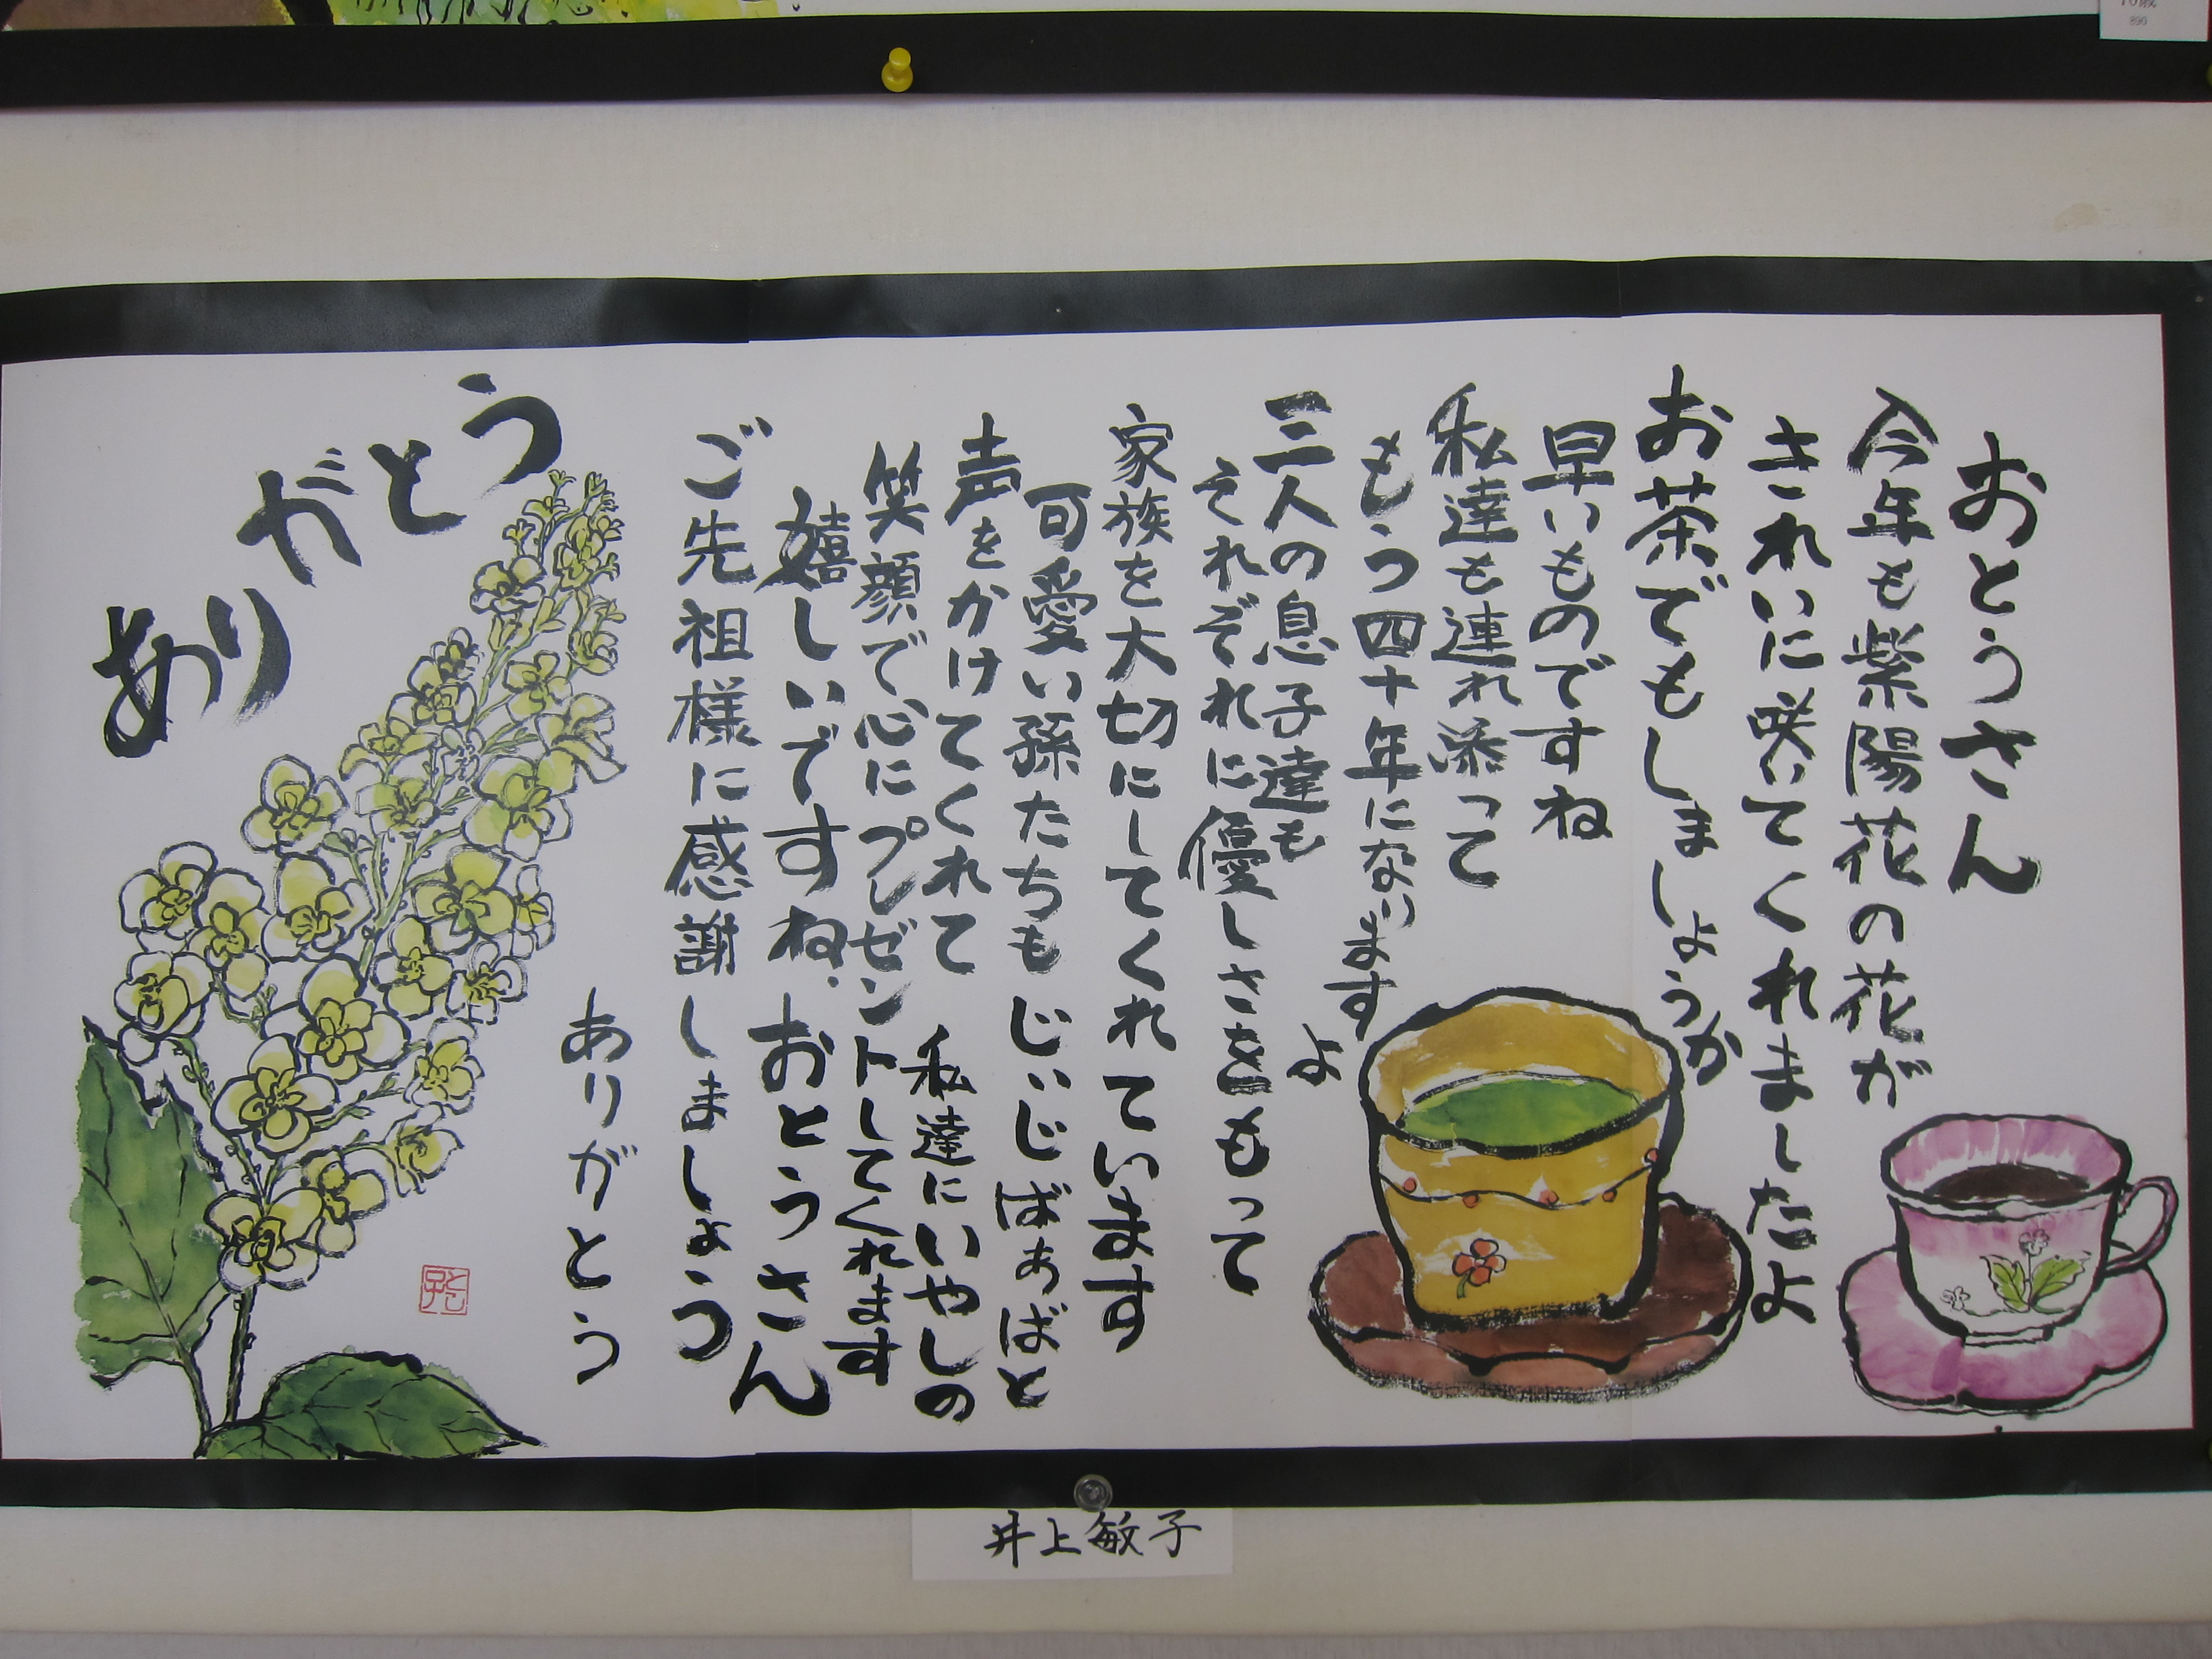 おとうさん
今年も紫陽花の花が
きれいに咲いてくれましたよ
お茶でもしましょうか
早いものですね
私達も連れ添って
もう四十年になりますよ
三人の息子達も
それぞれに優しさをもって
家族を大切にしてくれています
可愛い孫たちも じいじばぁばと
声をかけてくれて 私達にいやしの
笑顔で心にプレゼントしてくれます
嬉しいですね.おとうさん
ご先祖様に感謝しましょう
ありがとう
ありがとう
井上敏子
890